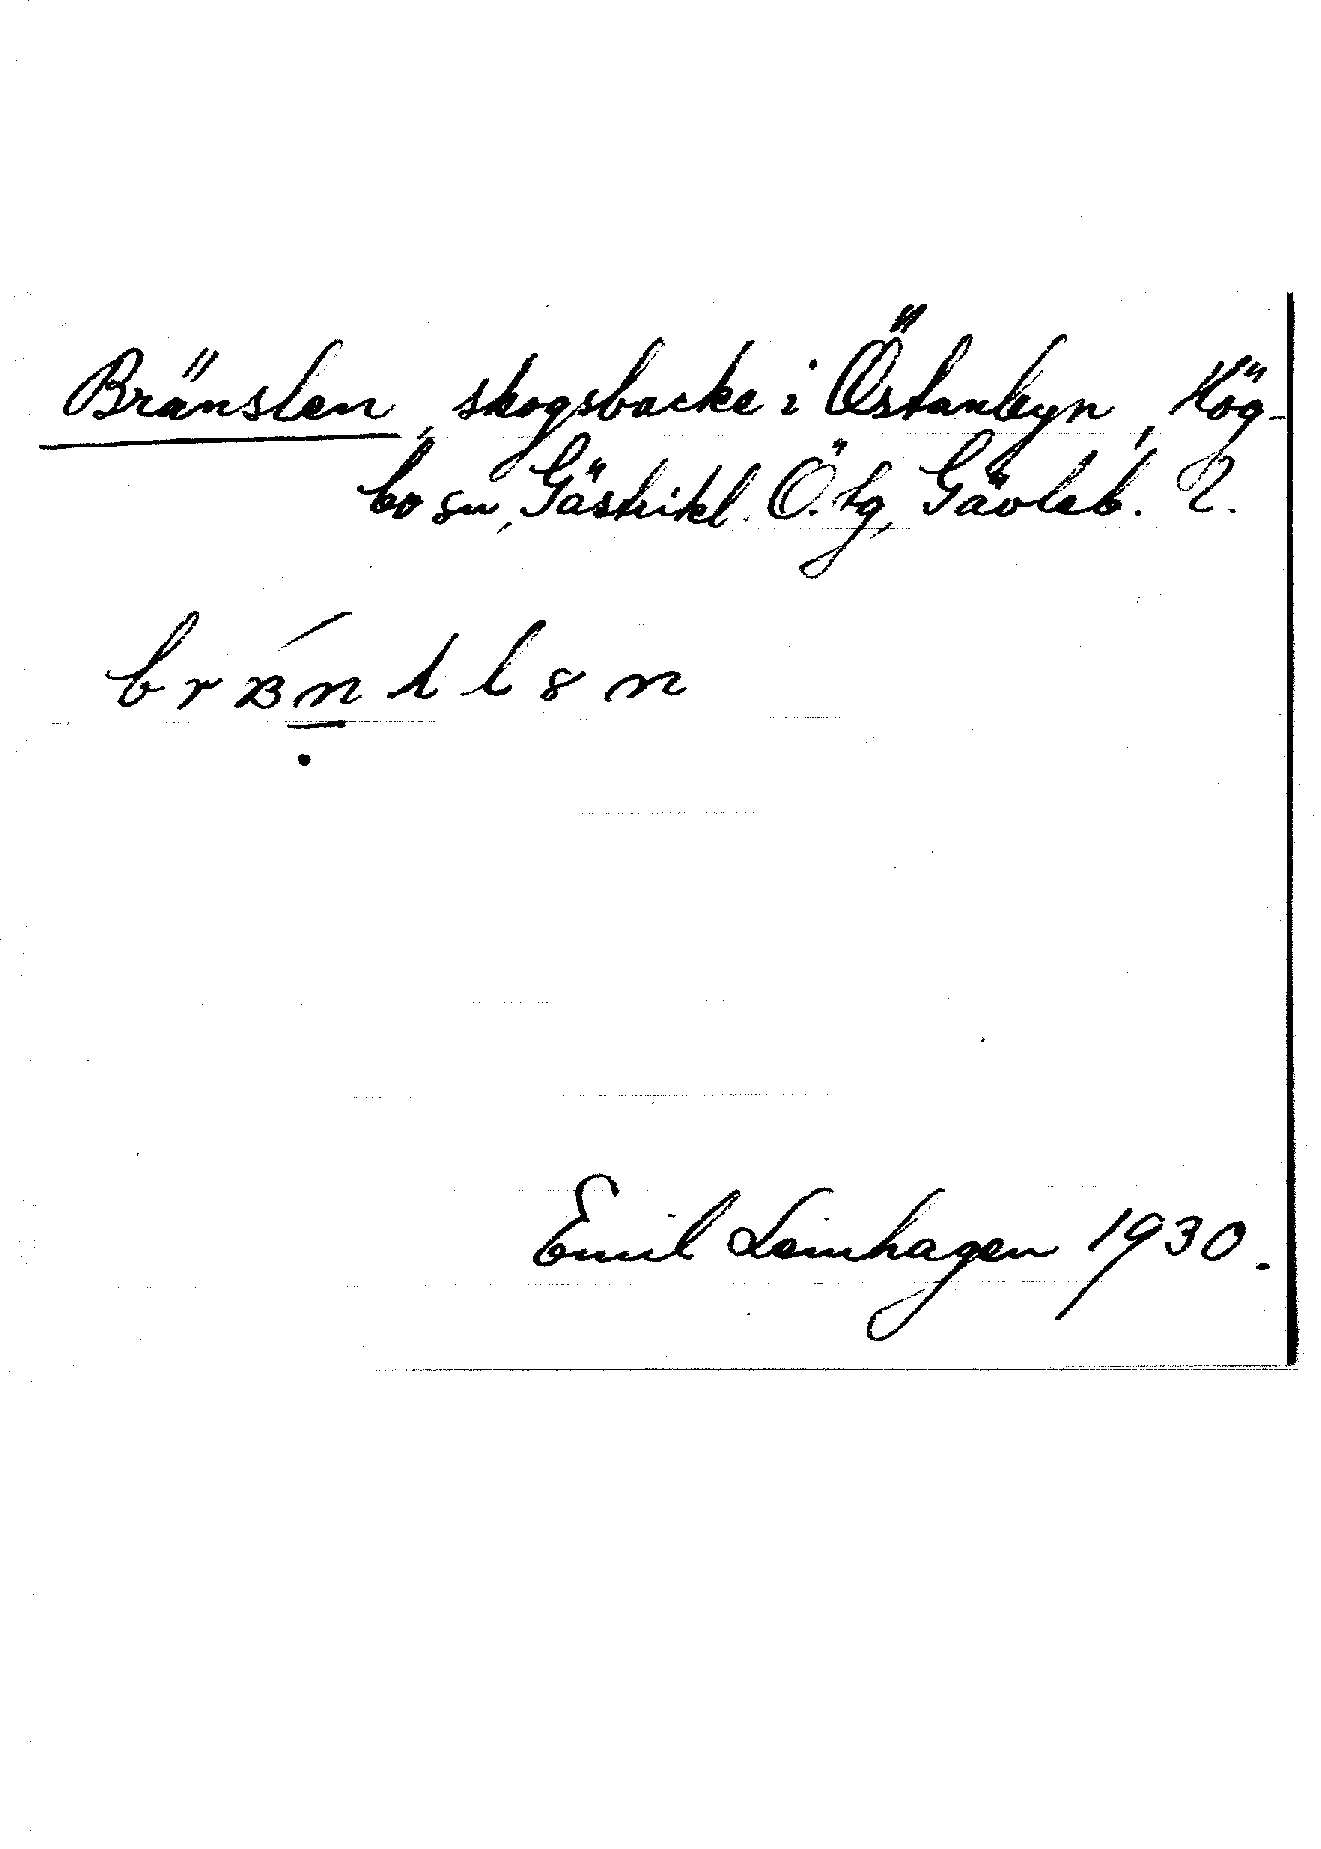 Bränslen, skogsbacke i Östanbyn, Hög-
bo sn, Gästrikl. Ö. tg, Gävleb. l.
Emil Leinhagen 1930.